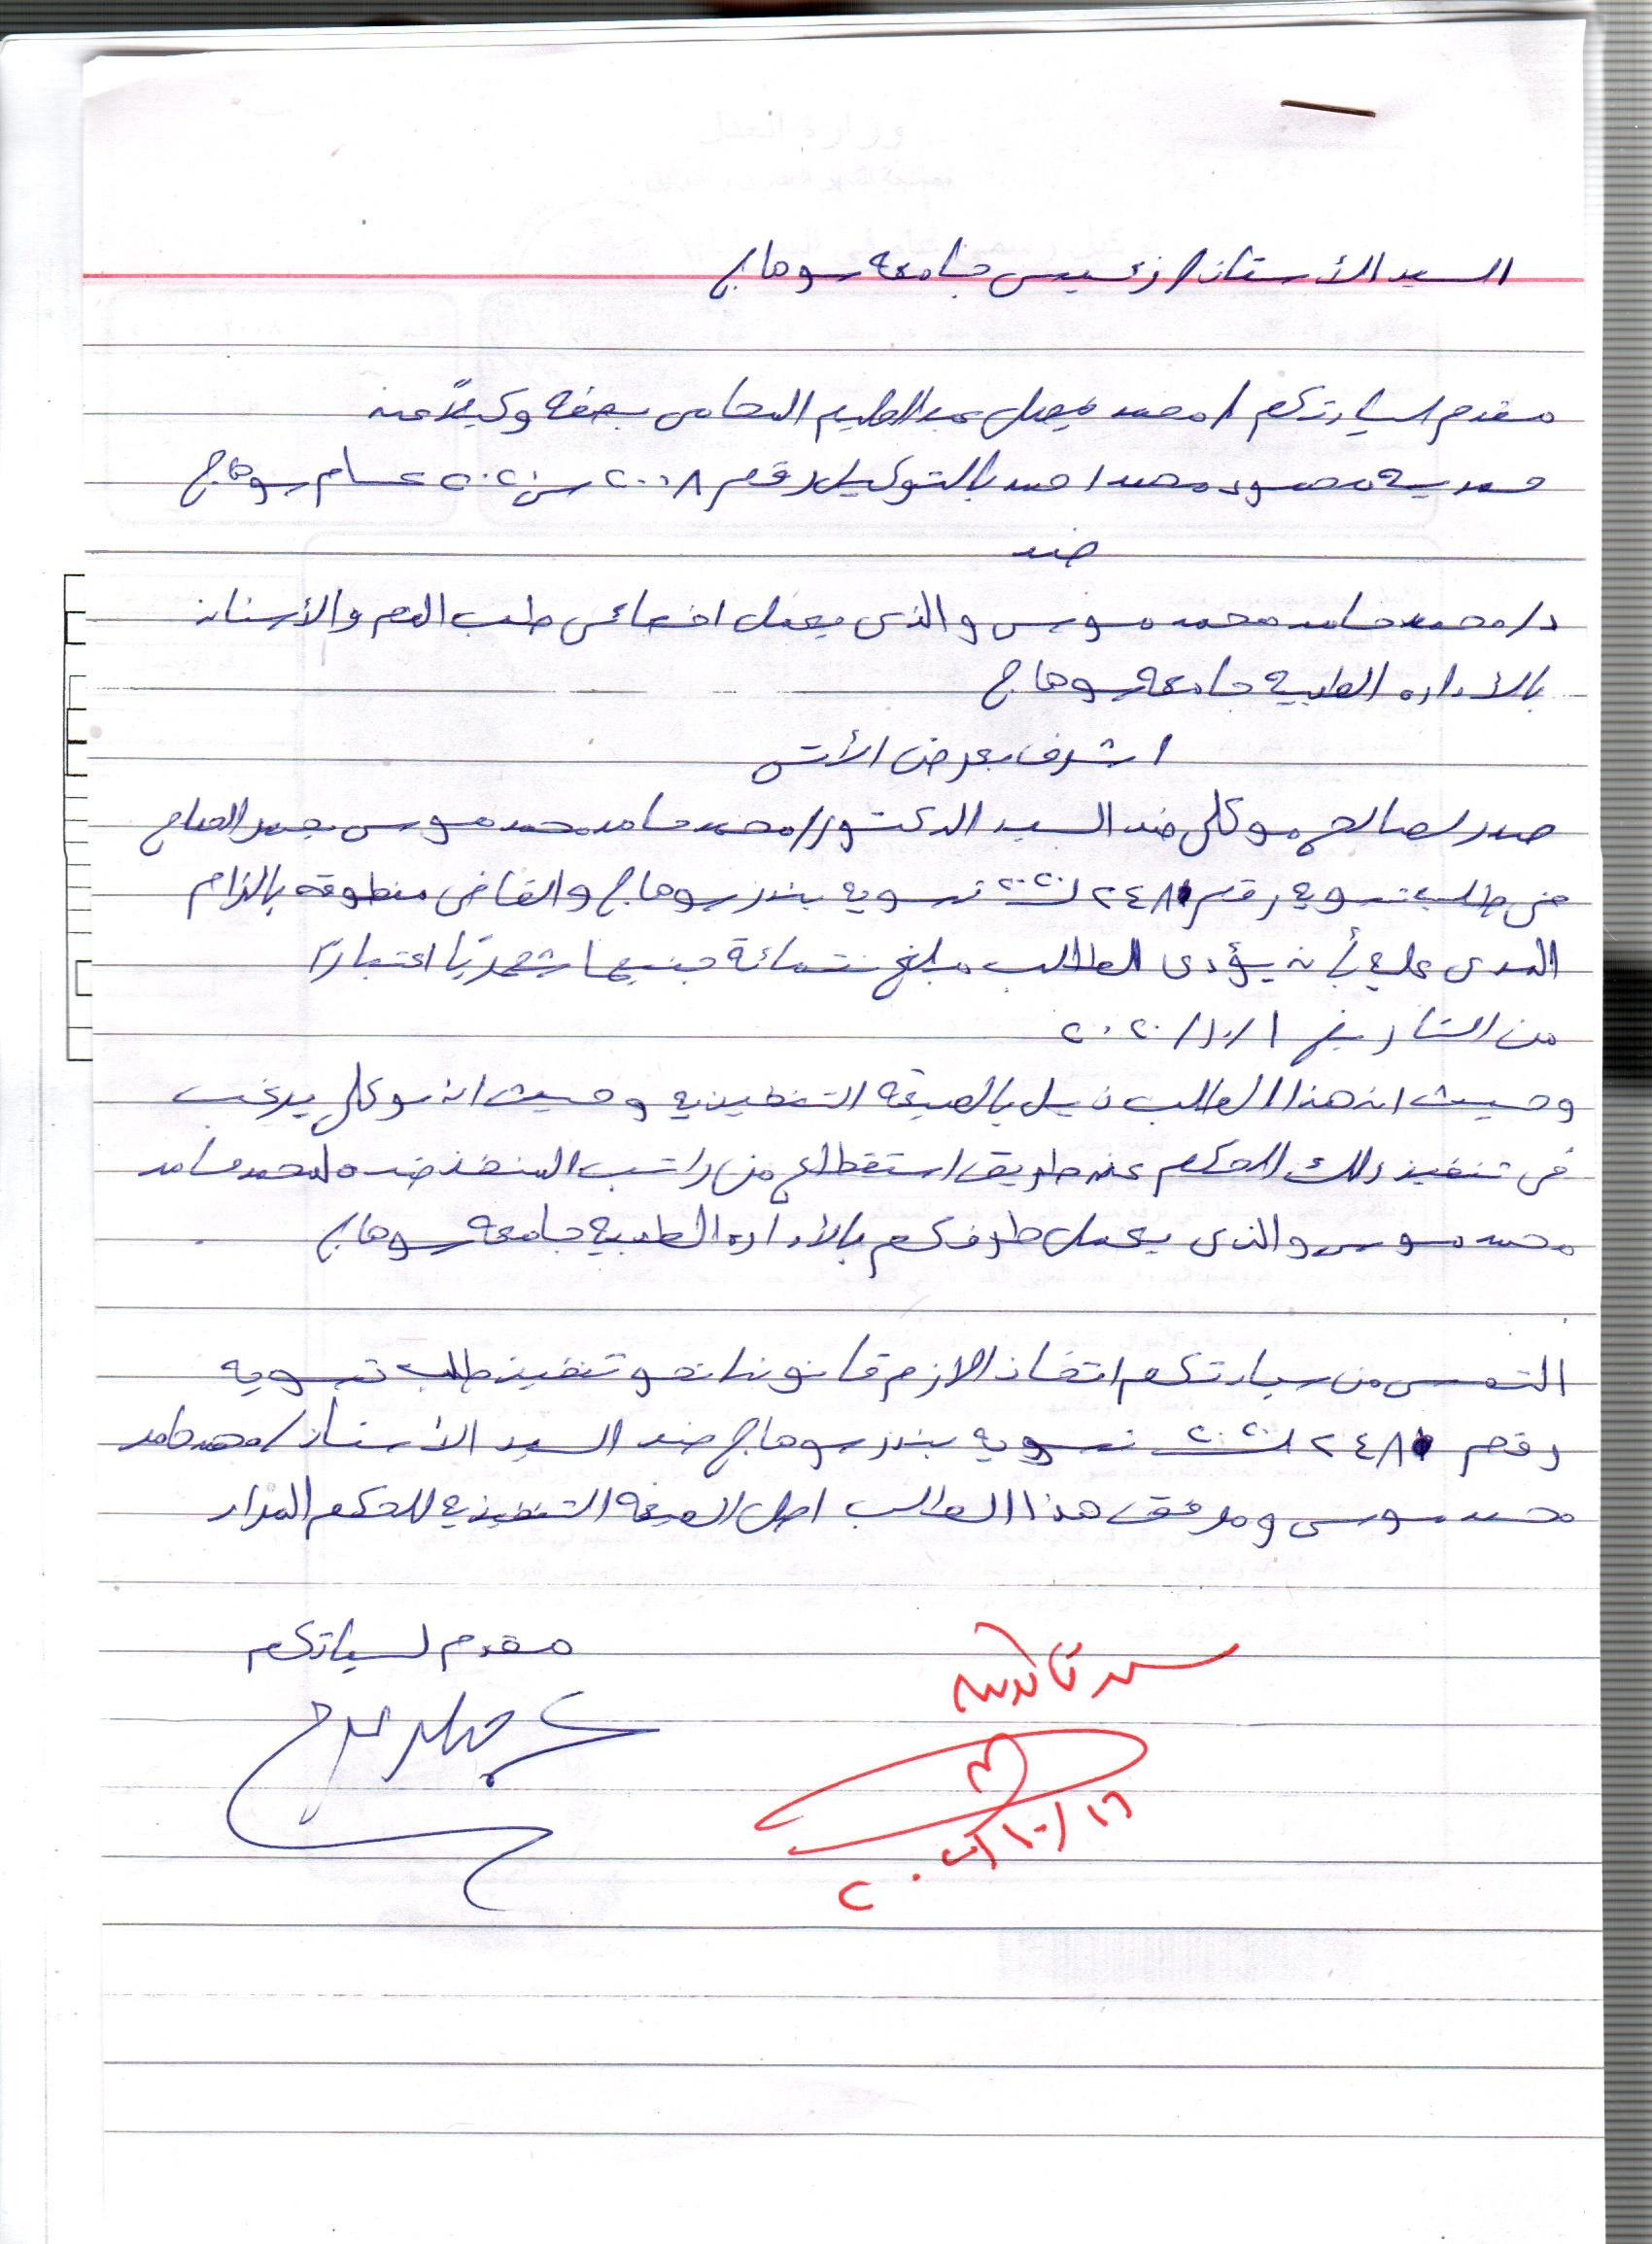 السيد الأستاذ / رئيس جامعة سوهاج
مقدم لسيادتكم / محمد فيصل عبد العليم المحامى بصفة وكيلاً عن
حمديه محمود محمد احمد بالتوكيل رقم ٢٠٠٨ س ٢٠٢٠ عام سوهاج
ضد
د/ محمد حامد محمد موسى والذى يعمل اخصائى طب الفم والأسنان
بالأداره الطبيه جامعة سوهاج
اتشرف بعرض الأتى
صدر لصالح موكلى ضد السيد الدكتور / محمد حامد محمد موسى محضر الصلح
فى طلب تسويه رقم ٢٤٨ لسنة ٢٠٢٠ تسويه بندر سوهاج والقاضى منطوقه بالزام
المدعى عليه بأن يؤدى للطالب مبلغ ستمائة جنيها شهريًا اعتبارًا
من التاريخ ١ /١٠/ ٢٠٢٠
وحيث ان هذا الطلب ذيل بالصيغه التنفيذيه وحيث ان موكلى يرغب
فى تنفيذ ذلك الحكم عن طريق استقطاع من راتب المنفذ ضده محمد حامد
محمد موسى والذى يعمل طرفكم بالأداره الطبيه جامعة سوهاج
التمس من سيادتكم اتخاذ الازم قانونا نحو تنفيذ طلب تسويه
رقم ٢٤٨ لسنة ٢٠٢٠ تسويه بندر سوهاج ضد السيد الأستاذ / محمد حامد
محمد موسى ومرفق هذا الطلب اصل الصيغه التنفيذيه للحكم المراد
مقدم لسيادتكم